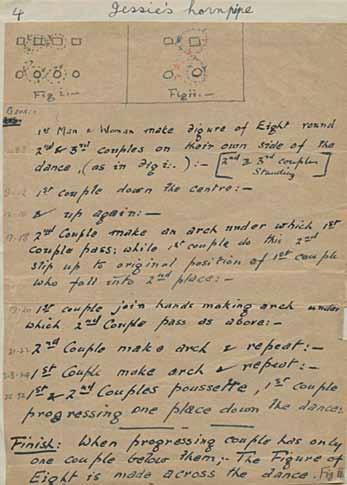 4 Jessie's hornpipe
Fig i:-
Fig ii:-
Bars:-
1st Man & Woman make figure of Eight round
2nd & 3rd couples on their own side of the
dance, (as in fig i:.) :- [2nd & 3rd couples
standing]
1st couple down the centre:-
& up again:-
17-18 2nd Couple make an arch under which 1st
Couple pass; while 1st couple do this 2nd
slip up to original position of 1st couple
who fall into 2nd place:-
19-20 1st couple join hands making arch under
which 2nd Couple pass as above:-
21-22 2nd Couple make arch & repeat:-
1st Couple make arch & repeat:-
1st & 2nd Couples poussette, 1st couple
progressing one place down the dance:
Finish: When progressing couple has only
one couple below them;- The Figure of
Eight is made across the dance. Fig ii